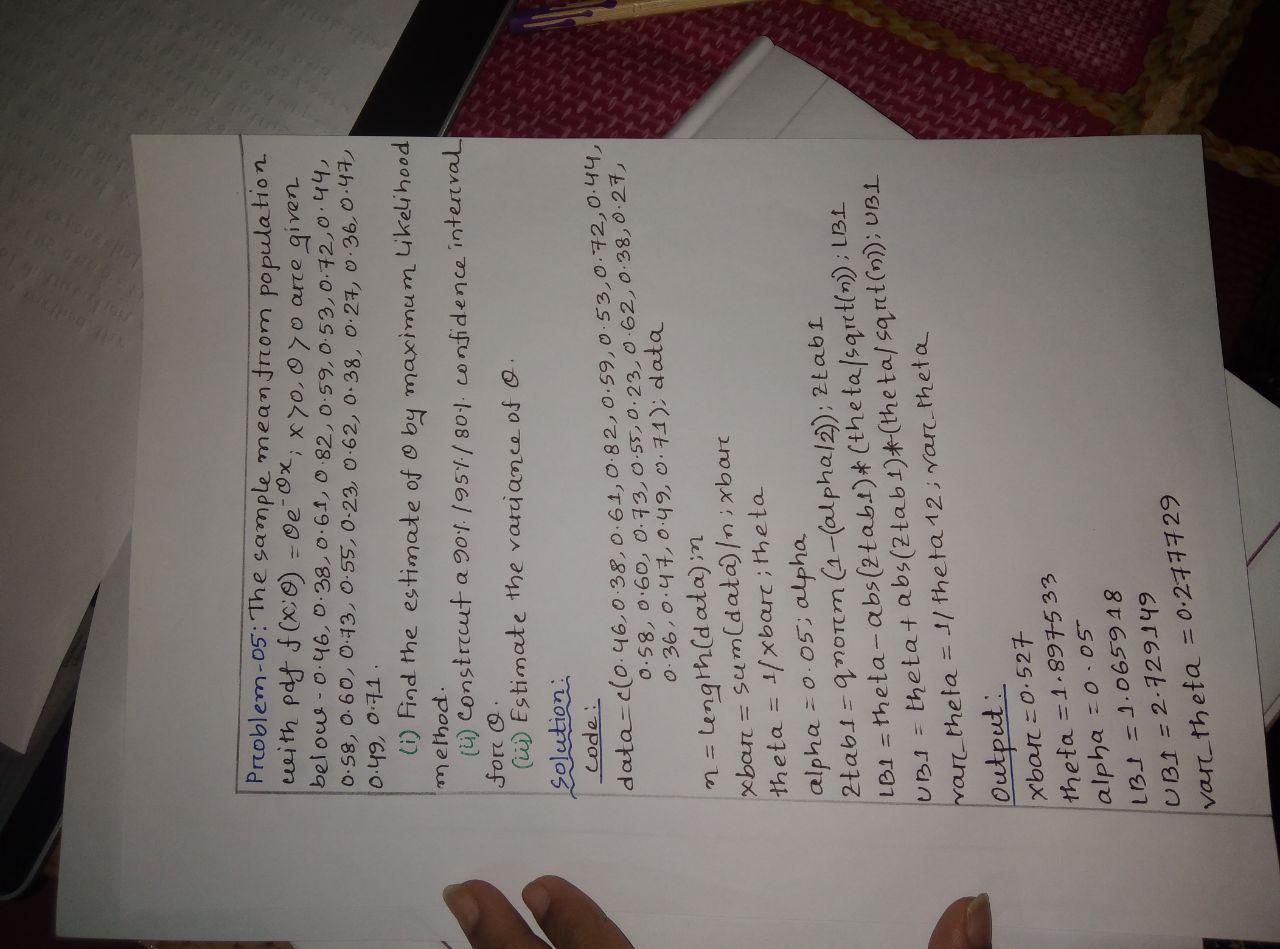 Problem-05: The sample mean from population
with pdf f(x;θ) = θe^-θx; x>0, θ>0 are given
below - 0.46, 0.38, 0.61, 0.82, 0.59, 0.53, 0.72, 0.44,
0.58, 0.60, 0.73, 0.55, 0.23, 0.62, 0.38, 0.27, 0.36, 0.47,
0.49, 0.71.
(i) Find the estimate of θ by maximum Likelihood
method.
(ii) Construct a 90%/95%/80% confidence interval
for θ.
(iii) Estimate the variance of θ.
Solution:
Code:
data=c(0.46,0.38,0.61,0.82,0.59,0.53,0.72,0.44,
0.58,0.60,0.73,0.55,0.23,0.62,0.38,0.27,
0.36,0.47,0.49,0.71);data
n=length(data);n
xbar=sum(data)/n;xbar
theta=1/xbar;theta
alpha=0.05;alpha
ztab1=qnorm(1-(alpha/2));ztab1
LB1=theta-abs(ztab1)*(theta/sqrt(n));LB1
UB1=theta+abs(ztab1)*(theta/sqrt(n));UB1
var_theta=1/theta^2;var_theta
Output:
xbar=0.527
theta=1.897533
alpha=0.05
LB1=1.065918
UB1=2.729149
var_theta=0.277729